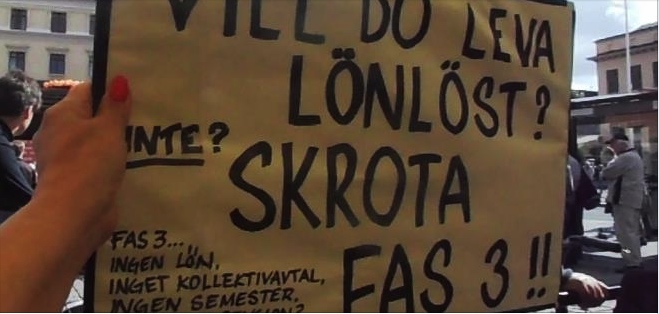 VILL DU LEVA
LÖNLÖST?
INTE?
SKROTA
FAS 3!!
FAS 3...
INGEN LÖN,
INGET KOLLEKTIVAVTAL,
INGEN SEMESTER,